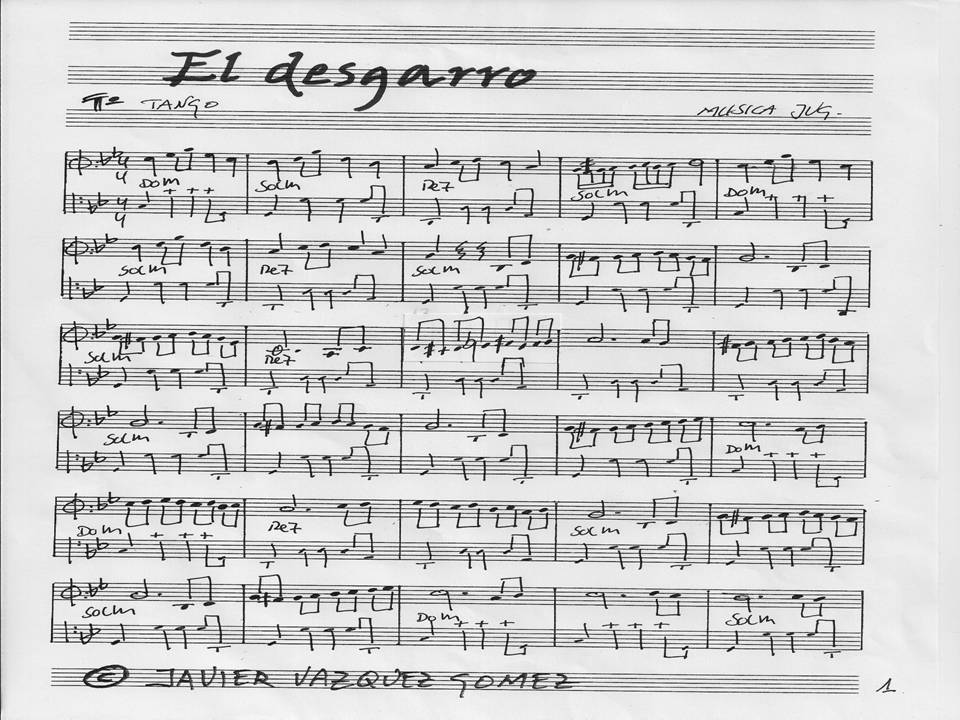 El desgarro
TANGO
MUSICA JVG.
4 4
DOM SOLM RE7 SOLM DOM
4 4
SOLM RE7 SOLM
SOLM RE7
SOLM DOM
DOM RE7 SOLM
SOLM DOM SOLM
© JAVIER VAZQUEZ GOMEZ
1